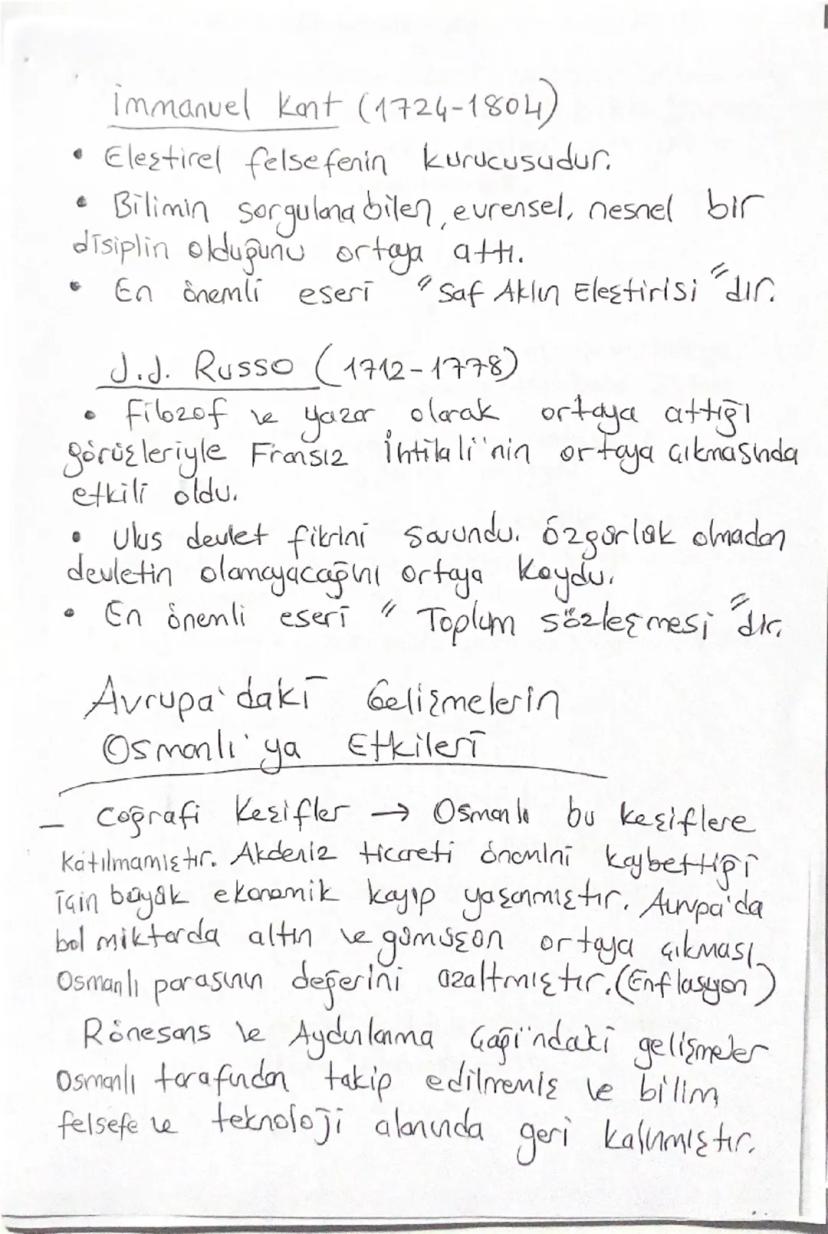 İmmanuel Kant (1724-1804)
• Eleştirel felsefenin kurucusudur.
• Bilimin sorgulanabilen, evrensel, nesnel bir
disiplin olduğunu ortaya attı.
• En önemli eseri "Saf Aklın Eleştirisi"dir.
J.J. Russo (1712-1778)
• Filozof ve yazar olarak ortaya attığı
görüşleriyle Fransız İhtilali'nin ortaya çıkmasında
etkili oldu.
• Ulus devlet fikrini savundu. Özgürlük olmadan
devletin olamayacağını ortaya koydu.
• En önemli eseri "Toplum sözleşmesi"dir.
Avrupa'daki Gelişmelerin
Osmanlı'ya Etkileri
- Coğrafi Keşifler → Osmanlı bu keşiflere
katılmamıştır. Akdeniz ticareti önemini kaybettiği
için büyük ekonomik kayıp yaşanmıştır. Avrupa'da
bol miktarda altın ve gümüşün ortaya çıkması
Osmanlı parasının değerini azaltmıştır. (Enflasyon)
Rönesans ve Aydınlanma Çağı'ndaki gelişmeler
Osmanlı tarafından takip edilmemiş ve bilim
felsefe ve teknoloji alanında geri kalınmıştır.